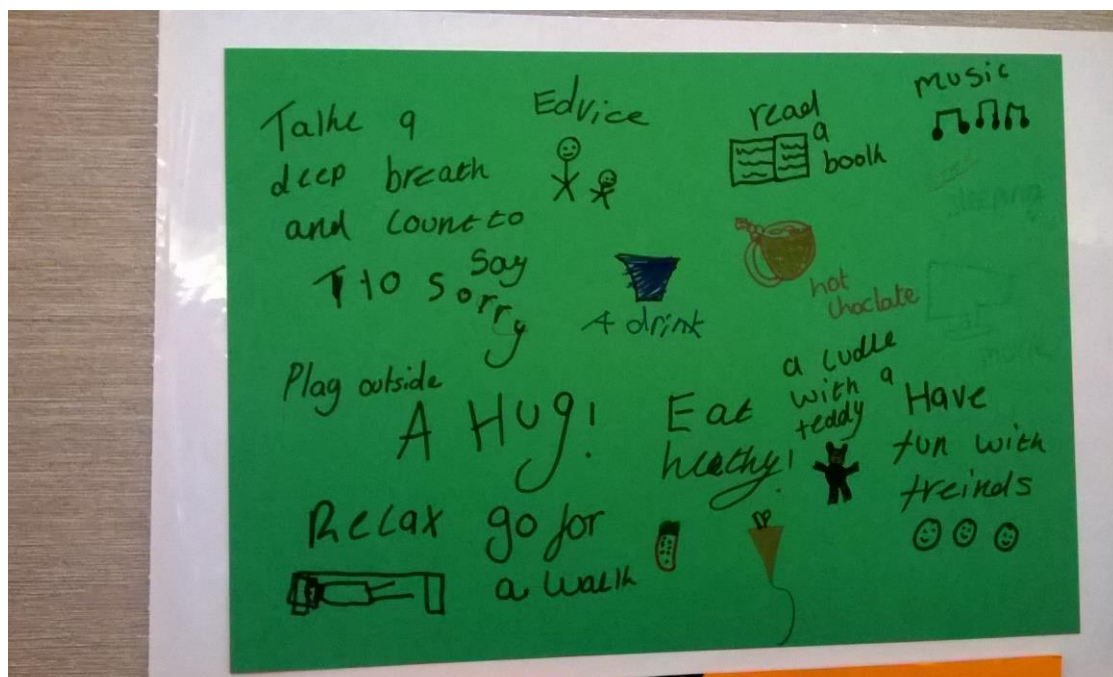 Talke a
deep breath
and count to
10
say
sorry
Edvice
read
a
boolk
music
sleeping
A drink
hot
choclate
movie
Play outside
A HUg!
Eat
heathy!
a cudle
with a
teddy
Have
fun with
freinds
Relax
go for
a walk